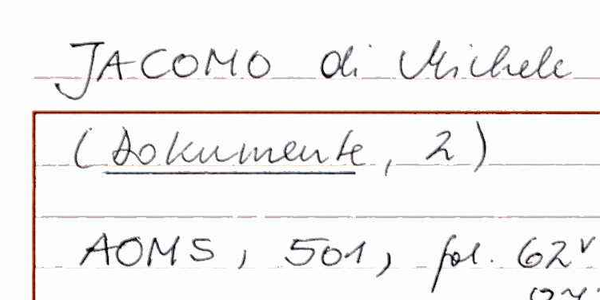 JACOMO di Michele
(Dokumente, 2)
AOMS, 501, fol. 62v